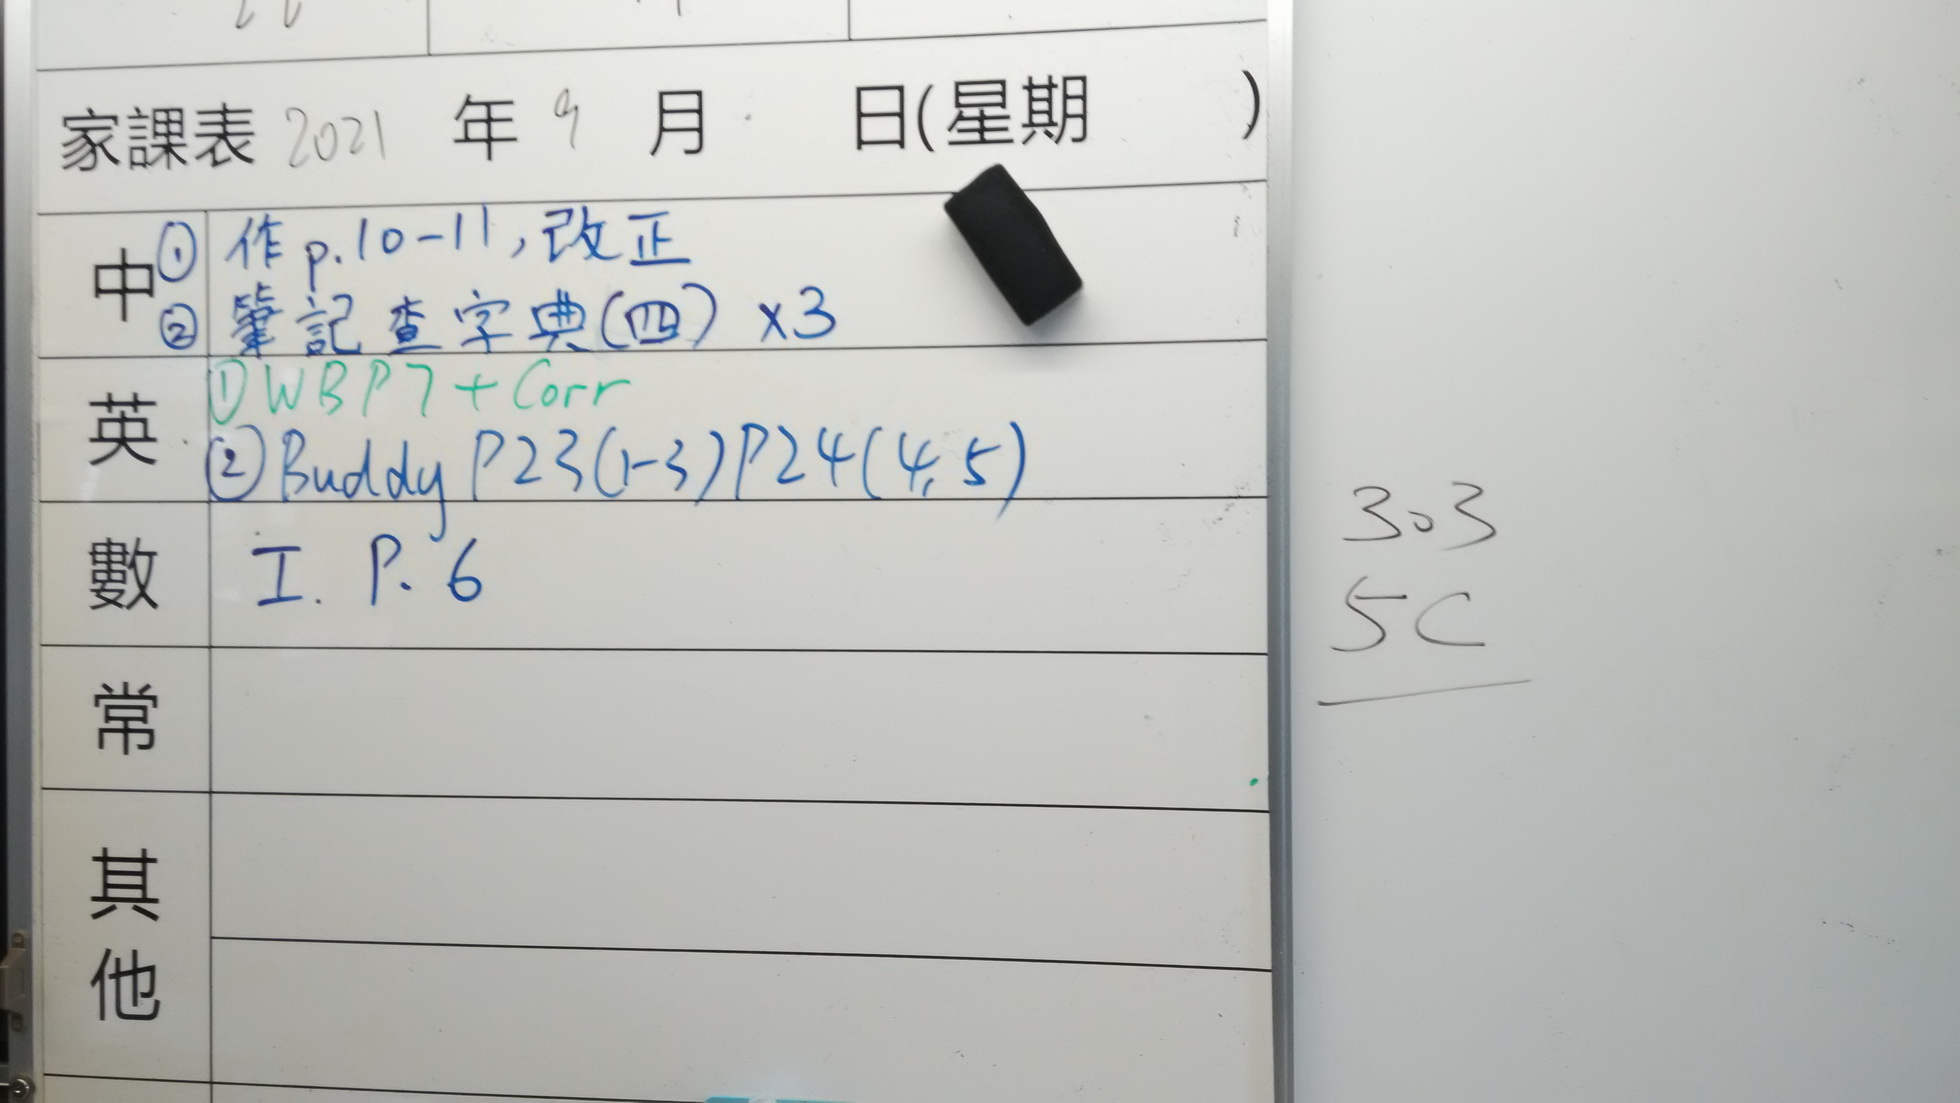 家課表 2021 年 9 月 日(星期 )
中 ① 作 p.10-11, 改正
② 筆記查字典(四) x3
英 ① WBP7 + Corr
② Buddy P23(1-3) P24(4,5)
數 I. P. 6
常
其他
303
5C